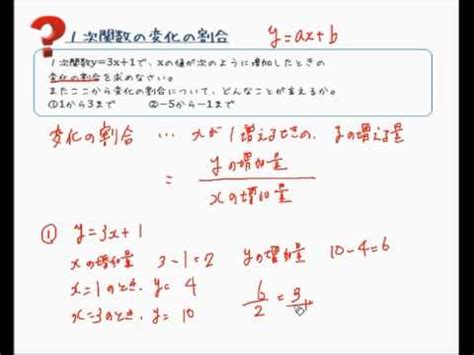 ?１次関数の変化の割合 y=ax+b
１次関数y=3x+1で、xの値が次のように増加したときの
変化の割合を求めなさい。
またここから変化の割合について、どんなことが言えるか。
①1から3まで ②-5から-1まで
変化の割合 … xが1増えるときの、yの増える量
= yの増加量/xの増加量
① y=3x+1
xの増加量 3-1=2 yの増加量 10-4=6
x=1のとき、y= 4 6/2 = 3
x=3のとき、y= 10